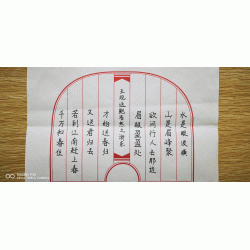 水是眼波横
山是眉峰聚
欲问行人去那边
眉眼盈盈处
王观送鲍浩然之浙东
才始送春归
又送君归去
若到江南赶上春
千万和春住